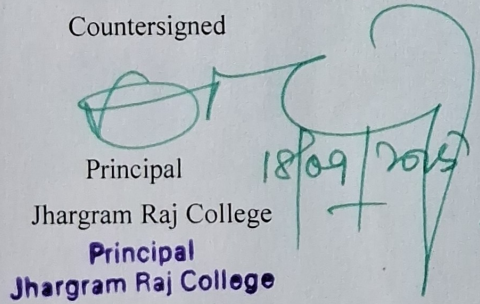 Countersigned
18/09/2025
Principal
Jhargram Raj College
Principal
Jhargram Raj College